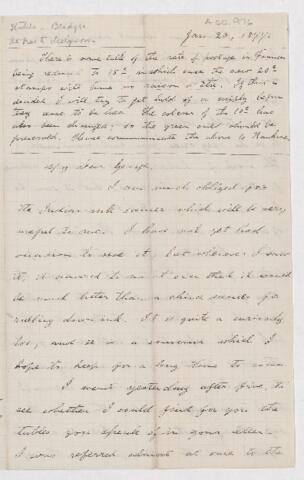 Jan. 20, 1878.
There is some talk of the rate of postage in France
being reduced to 15c. in which case the new 20c
stamps will have no raison d'être. If this is
decided I will try to get hold of a supply before
they cease to be used. The colour of the 10c has
also been changed; so the green ones should be
preserved. Please communicate the above to
My dear George,
I am much obliged for
the Indian ink saucer which will be very
useful to me. I have not yet had
occasion to use it, but whenever I saw
it, it seemed to me at once that it would
be much better than a china saucer for
rubbing down ink. It is quite a curiosity
too, and is a souvenir which I
hope to keep for a long time to come.
I went yesterday after five, to
see whether I could find for you the
tables you speak of in your letter.
I was referred almost at once to the